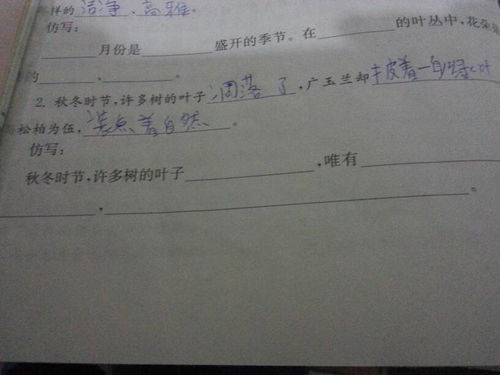 样的 洁净、高雅。
仿写：
月份是 盛开的季节。在 的叶丛中，花朵
的 ， 。
2. 秋冬时节，许多树的叶子 凋落了，广玉兰却披着一身绿叶
松柏为伍，装点着自然。
仿写：
秋冬时节，许多树的叶子 ，唯有
， 。